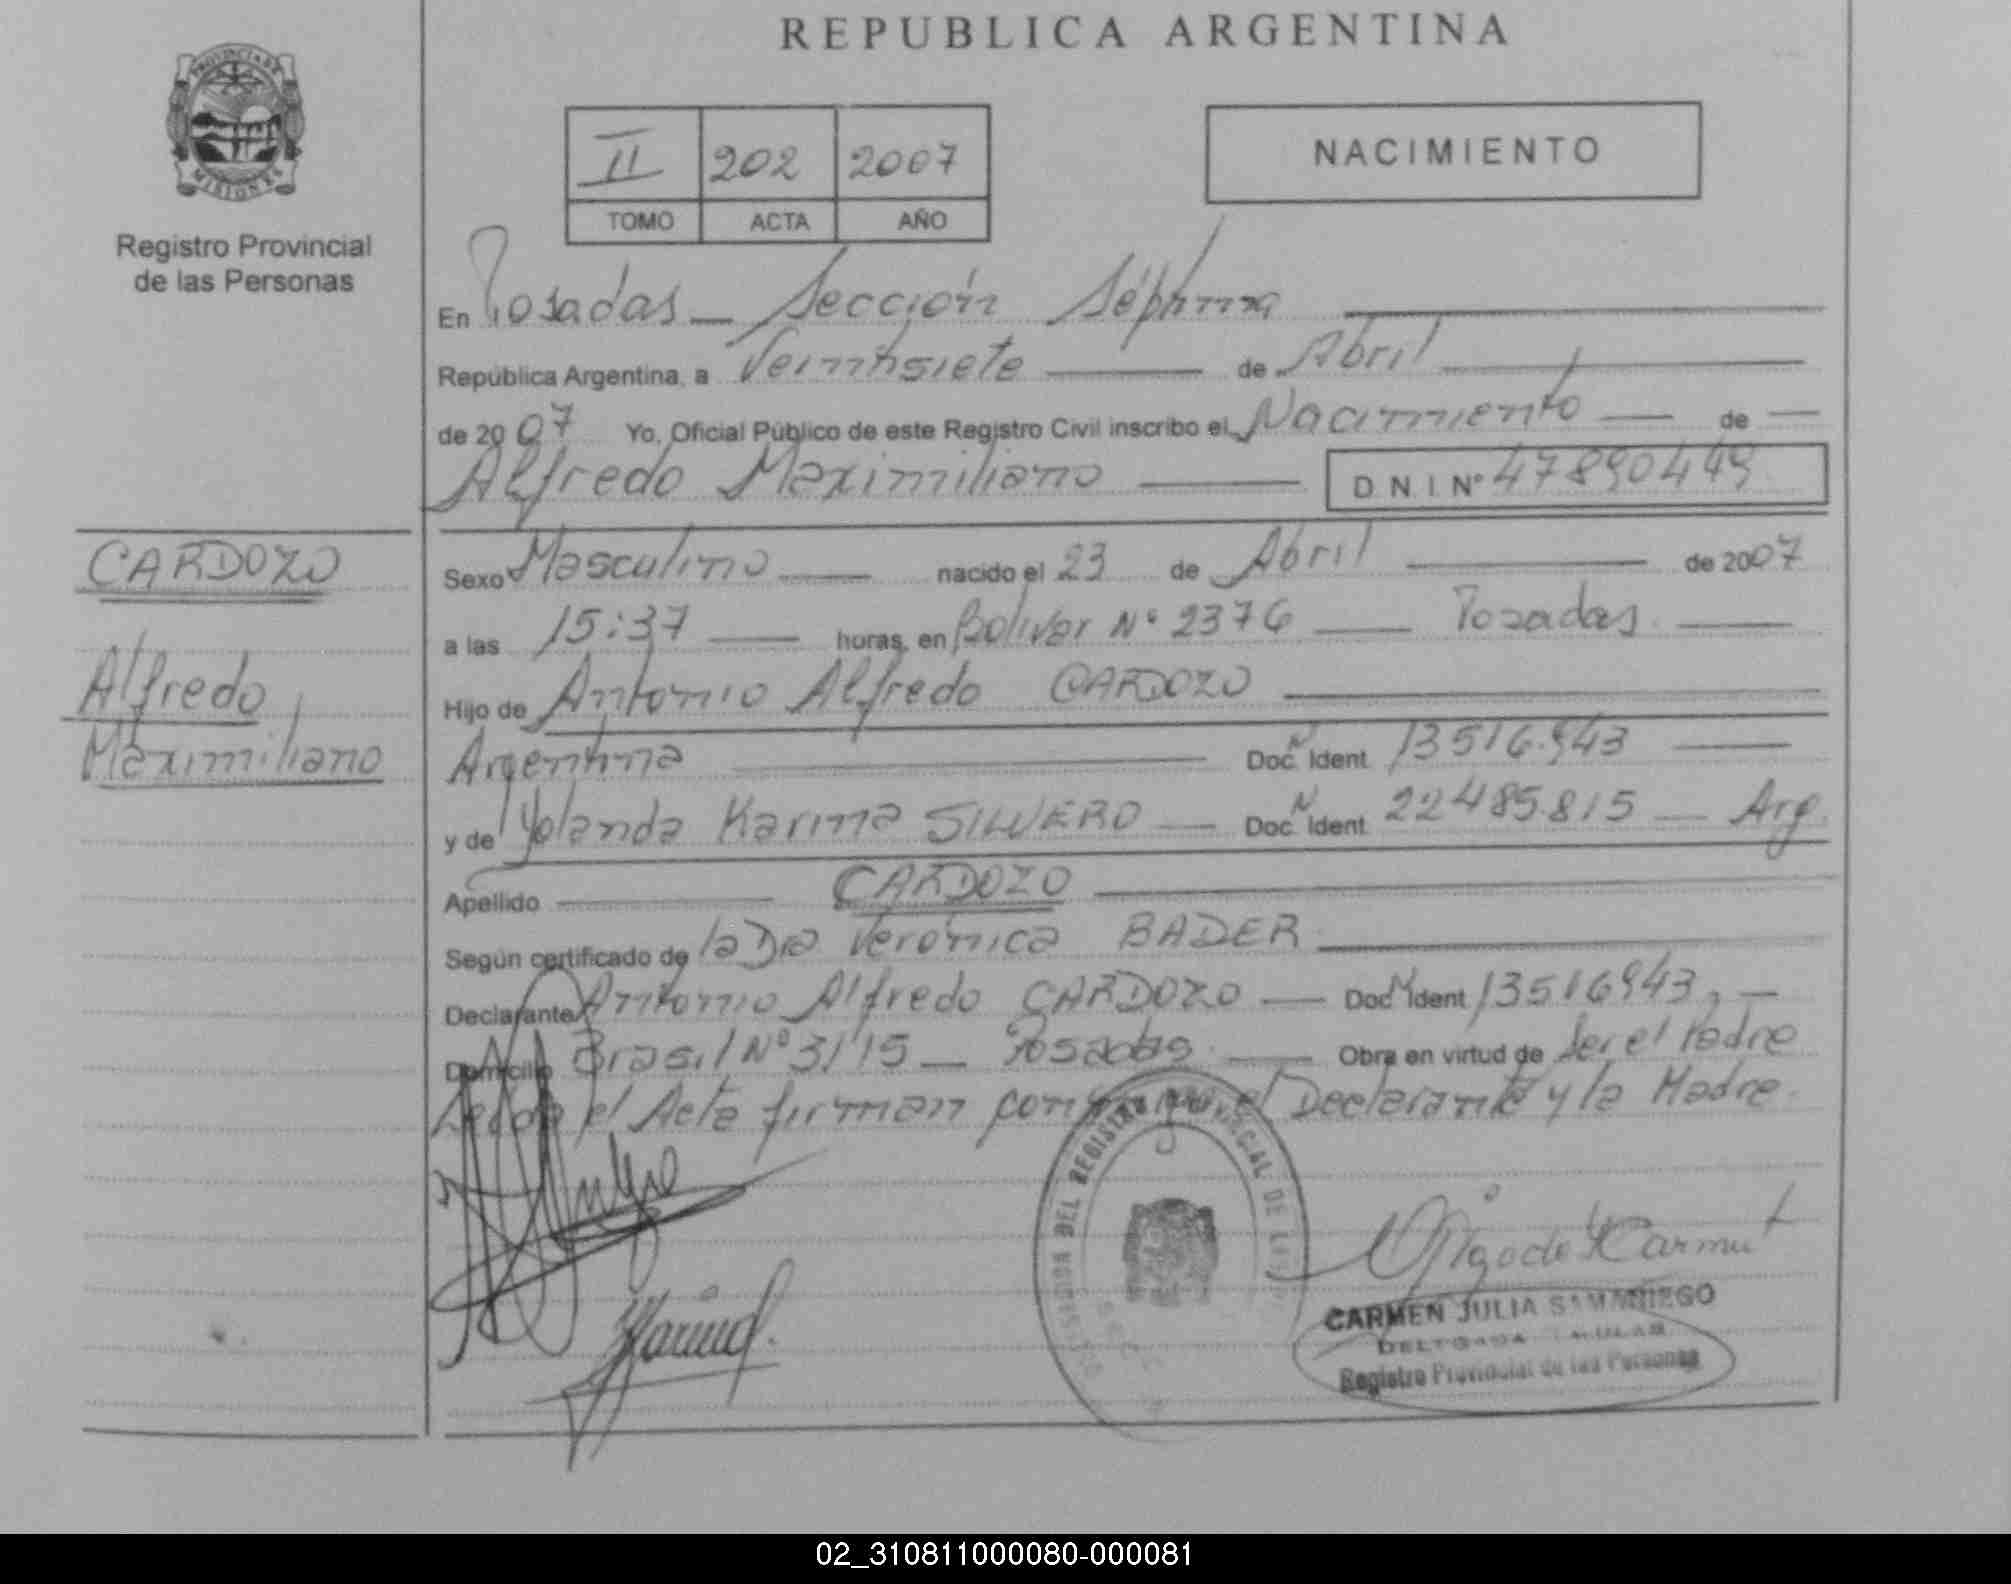 REPUBLICA ARGENTINA
PROVINCIA DE
MISIONES
Registro Provincial
de las Personas
II 202 2007
TOMO ACTA AÑO
NACIMIENTO
En Posadas - Sección Séptima
República Argentina, a Veintisiete de Abril
de 2007 Yo, Oficial Público de este Registro Civil inscribo el Nacimiento de
Alfredo Maximiliano D.N.I. Nº 47890449
CARDOZO
Alfredo
Maximiliano
Sexo Masculino nacido el 23 de Abril de 2007
a las 15:37 horas, en Bolívar Nº 2376 Posadas
Hijo de Antonio Alfredo CARDOZO
Argentina Doc. N Ident. 13516.943
y de Yolanda Karina SILVERO Doc. N Ident. 22485815 Arg.
Apellido CARDOZO
Según certificado de la Dra Verónica BADER
Declarante Antonio Alfredo CARDOZO Doc. N Ident 13516943,
Domicilio Brasil Nº 3115 Posadas Obra en virtud de Ser el Padre
Leída el Acta firman conmigo el Declarante y la Madre.
CARMEN JULIA SAMANIEGO
DELEGADA TITULAR
Registro Provincial de las Personas
02_310811000080-000081